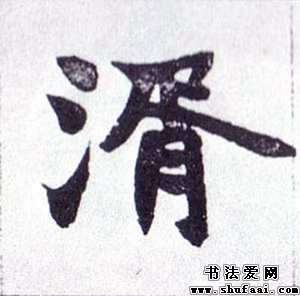 湑
书法爱网
www.shufaai.com